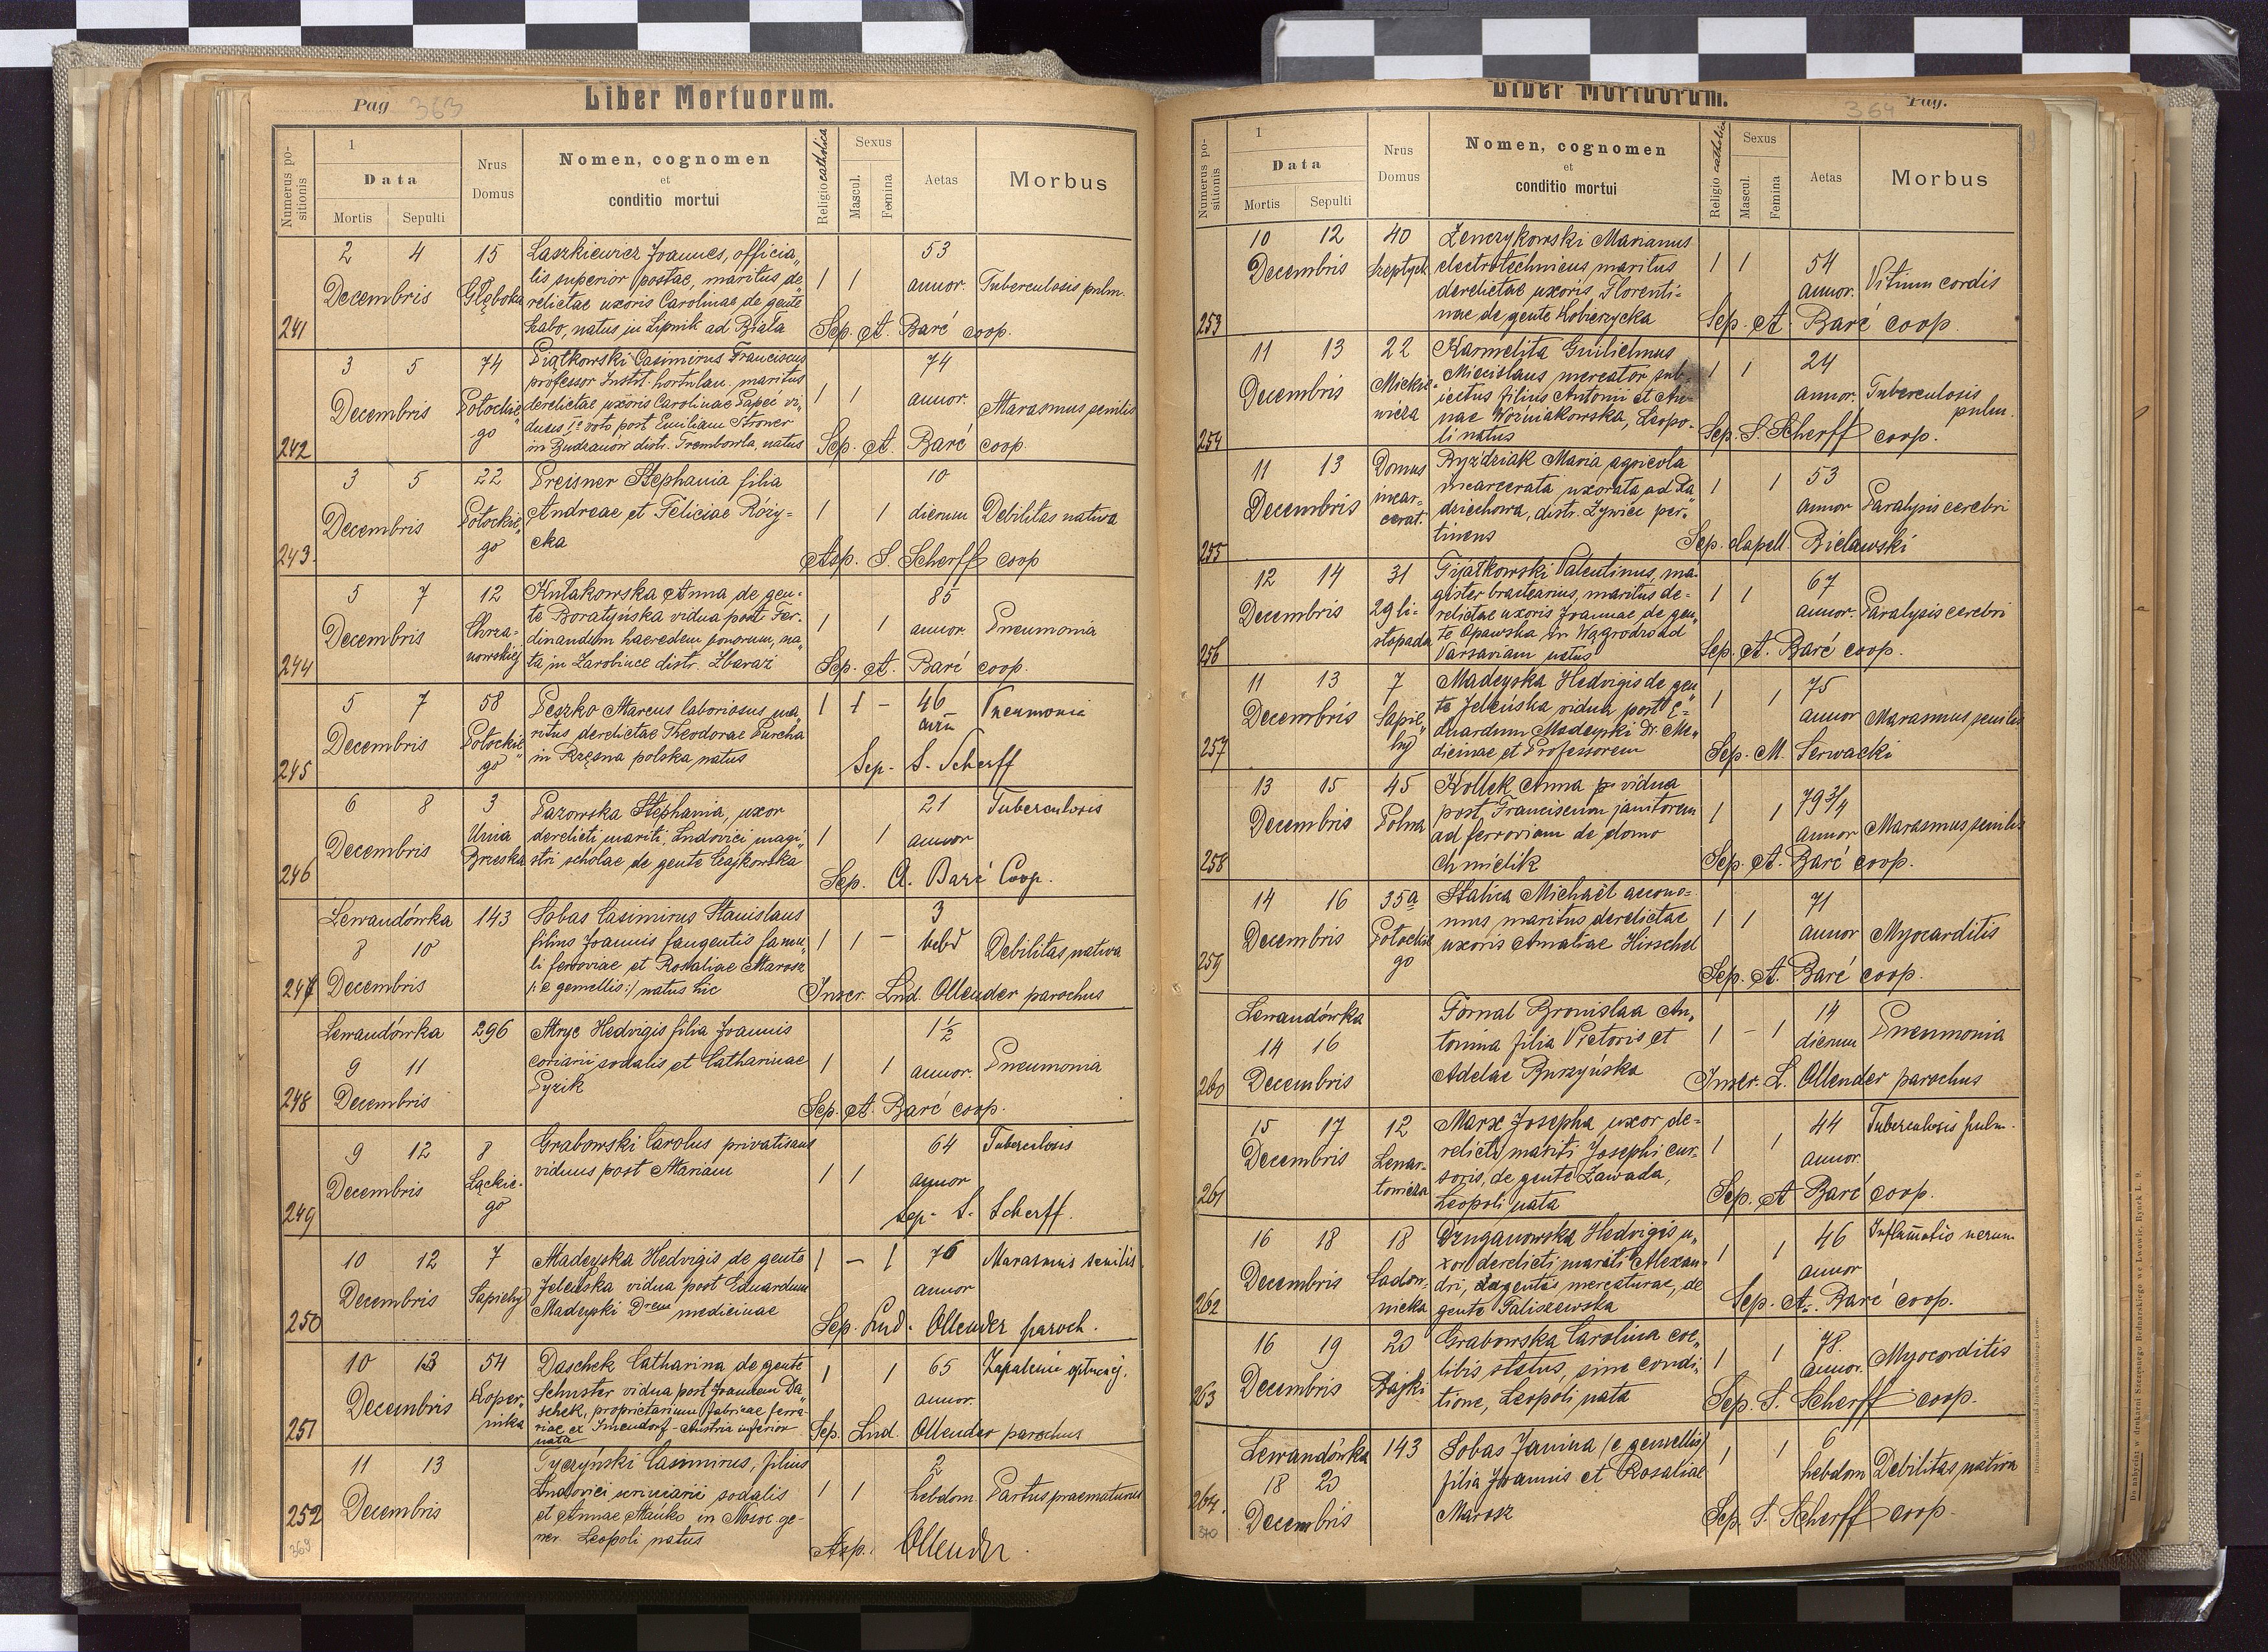 Pag 363
Liber Mortuorum.
Numerus positionis
1
Data
Mortis Sepulti
Nrus Domus
Nomen, cognomen
et
conditio mortui
Religio catholica
Sexus
Mascul. Femina
Aetas
Morbus
2 4 15 Laszkiewicz Joannes, officia„ 53
Decembris Głęboka lis superior postae, maritus de„ 1 1 annor. Tuberculosis pulm.
relictae uxoris Carolinae de gente
241 Szabo, natus in Lipnik ad Biała Sep. A. Barć coop.
3 5 74 Piątkowski Casimirus Franciscus 74
professor Instit. hortulan. maritus
Decembris Potockie„ derelictae uxoris Carolinae Papeć vi„ 1 1 annor. Marasmus senilis
go duus 1º voto post Emiliam Stroner
242 in Budzanów distr. Trembowla, natus Sep. A. Barć coop.
3 5 22 Preisner Stephania filia 10
Decembris Potockie„ Andreae et Feliciae Róży= 1 1 dierum Debilitas nativa
243. go cka Asp. S. Scherff coop
5 7 12 Kułakowska Anna de gen- 85
Decembris Chrza- te Boratyńska vidua post Fer- 1 1 annor Pneumonia
nowskiej dinandum haeredem bonorum, na„
244 ta in Zarobince distr. Zbaraż Sep. A. Barć coop.
5 7 58 Peszko Marcus laboriosus ma„ 1 1 - 46 Pneumonia
Decembris Potockie„ ritus derelictae Theodorae Purcha ann
245 go in Rzęsna polska natus Sep. S. Scherff
6 8 3 Pazowska Stephania, uxor 21 Tuberculosis
Decembris Unia derelicti mariti Ludovici magi„ 1 1 annor
246 Brzeska stri scholae de gente Czajkowska Sep. A. Barć Coop.
Lewandówka 143 Sobas Casimirus Stanislaus 3
8 10 filius Joannis fungentis famu„ 1 1 - hebd Debilitas nativa
li ferroviae et Rosaliae Marosz
247 Decembris /: e gemellis:/ natus hic Inser. Lud. Ollender parochus
Lewandówka 296 Stryc Hedvigis filia Joannis 1½
9 11 coriarii sodalis et Catharinae 1 1 annor. Pneumonia
248 Decembris Pyzik Sep. A. Barć coop.
9 12 8 Grabowski Carolus privatisans 64 Tuberculosis
Decembris Łąckie- viduus post Mariam 1 1 annor
249 go Sep. S. Scherff.
10 12 7 Madeyska Hedvigis de gente 1 - 1 76 Marasmus senilis
Decembris Sapiehy Jeleńska vidua post Eduardum annor
250 Madeyski Drem medicinae Sep. Lud. Ollender paroch.
10 13 54 Daschek Catharina de gente 1 1 65 Zapalenie opłucnej.
Decembris Koper„ Schuster vidua post Joannem Da„ annor.
nika schek, proprietarium fabricae ferra-
251 riae ex Inzendorf - Austria inferior Sep. Lud. Ollender parochus
nata
11 13 Tyczyński Casimirus, filius 2
Decembris Ludovici scriniarii sodalis 1 1 hebdom. Partus praematurus
252 et Annae Stańko in Nosoc. ge-
369 ner. Leopoli natus Asp. Ollender
Liber Mortuorum.
364 Pag.
Numerus positionis
1
Data
Mortis Sepulti
Nrus Domus
Nomen, cognomen
et
conditio mortui
Religio catholica
Sexus
Mascul. Femina
Aetas
Morbus
10 12 40 Zenczykowski Marianus
Decembris Szeptyck. electrotechnicus maritus 1 1 54 Vitium cordis
derelictae uxoris Florenti= annor.
253 nae de gente Kobierzycka Sep. A. Barć coop.
11 13 22 Karmelita Guilielmus 1 1 24
Decembris Mickie- Miecislaus mercator sub- annor. Tuberculosis
wicza iectus filius Antonii et An- pulm.
nae Woźniakowska, Leopo-
254 li natus Sep. S. Scherff coop.
11 13 Domus Byździak Maria agricola 53
Decembris incar- incarcerata uxorata ad Ra„ 1 1 annor Paralysis cerebri
cerat. dziechowa, distr. Żywiec per-
255 tinens Sep. Capell. Bielawski
12 14 31 Fijałkowski Valentinus, ma- 67
Decembris 29 li- gister bractearius, maritus de- 1 1 annor. Paralysis cerebri
stopada relictae uxoris Joannae de gen„
te Opawska in Wągrodzo ad
256 Varsaviam natus Sep. A. Barć coop.
11 13 7 Madeyska Hedvigis de gen„ 1 1 75
Decembris Sapie„ te Jeleńska vidua post E= annor Marasmus senilis
hy duardum Madeyski Dr. Me„
257 dicinae et Professorem Sep. M. Serwacki
13 15 45 Kollek Anna p. vidua 79¾
Decembris Polna post Franciscum janitorem 1 1 annor Marasmus senilis
ad ferroviam de domo
258 Chmielik Sep. A. Barć coop.
14 16 35a Stalica Michaël aecono= 71
Decembris Potockie mus maritus derelictae 1 1 annor Myocarditis
259 go uxoris Amaliae Hirschel Sep. A. Barć coop.
Lewandówka Fornal Bronislaa An„ 14
14 16 tonina filia Victoris et 1 - 1 dierum Pneumonia
260 Decembris Adelae Burzyńska Inser. L. Ollender parochus
15 17 12 Marx Josepha uxor de= 44 Tuberculosis pulm.
Decembris Lenar- relicti mariti Josephi cur- 1 1 annor.
towicza soris, de gente Zawada,
261 Leopoli nata Sep. A. Barć coop.
16 18 18 Druganowska Hedvigis u„ 46 Inflam̄atio renum
Decembris Sadow- xor derelicti mariti Alexan- 1 1 annor
nicka dri, agentis mercaturae, de
262 gente Faliszewska Sep. A. Barć coop.
16 19 20 Grabowska Carolina coe„ 78.
Decembris Bajki libis status, sine condi- 1 1 annor. Myocorditis
263 tione, Leopoli nata Sep. S. Scherff coop.
Lewandówka 143 Sobas Janina /e gemellis/ 1 1 6
18 20 filia Joannis et Rosaliae hebdom Debilitas nativa
264. Decembris Marosz Sep. S. Scherff coop.
370
Drukarnia Katolicka Józefa Chęcińskiego Lwów.
Do nabycia w drukarni Szczęsnego Bednarskiego we Lwowie, Rynek L. 9.